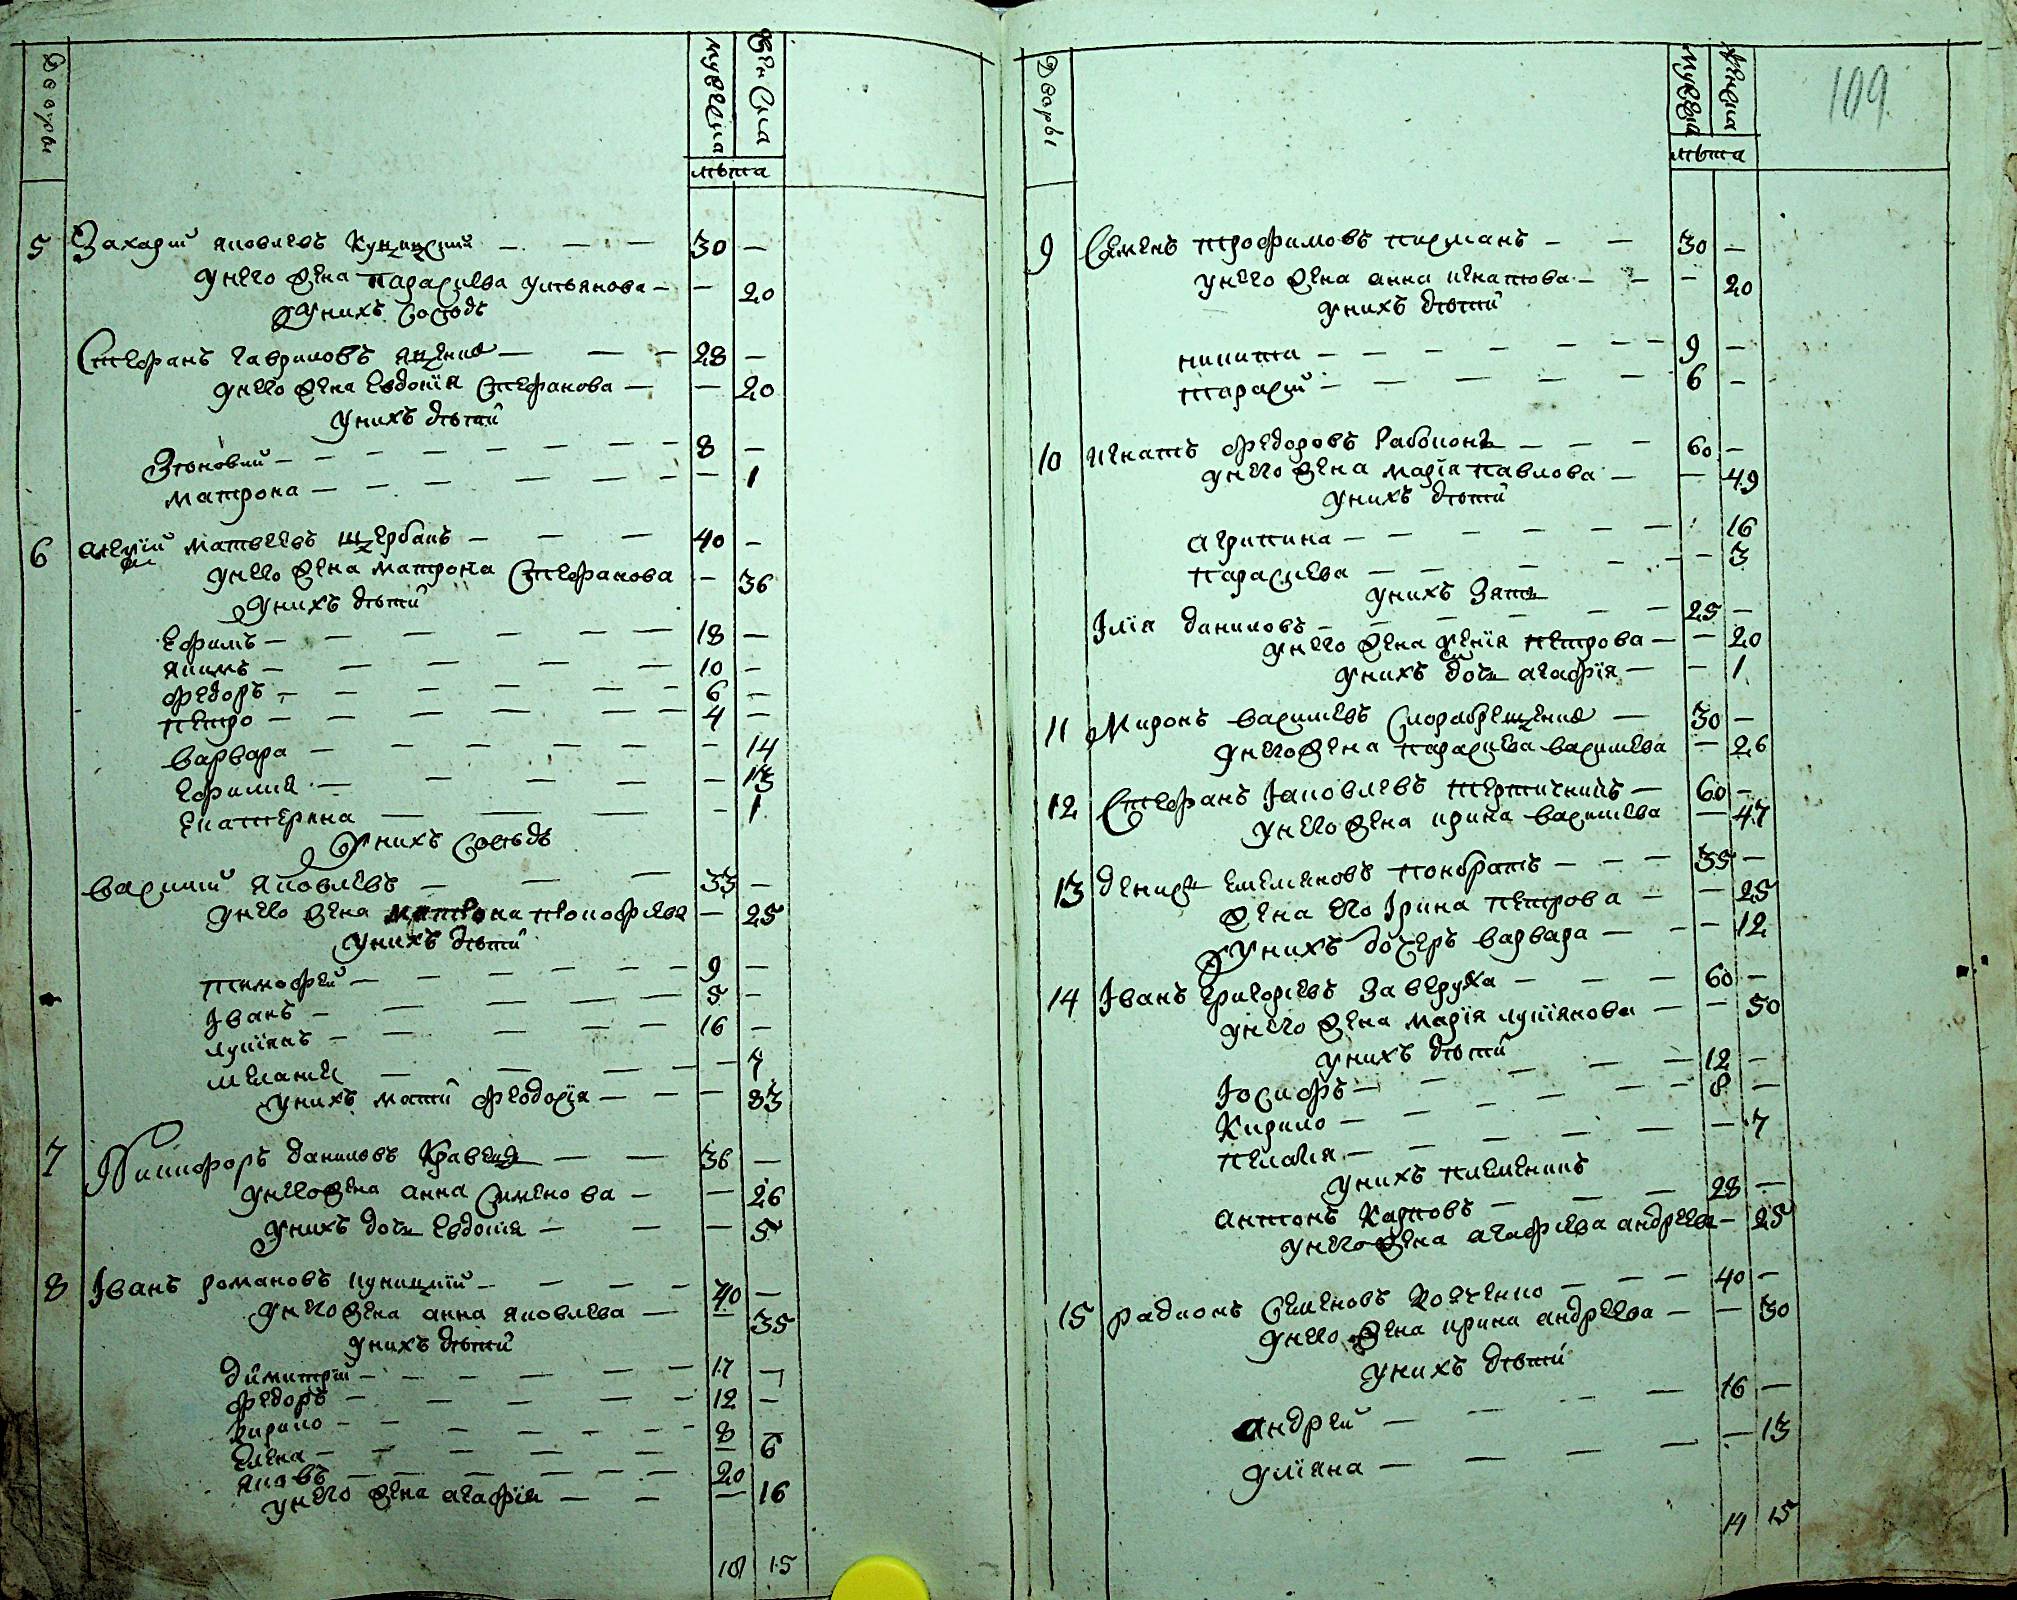 Дворы
мужеска
женска
лѣта
5 Захарий яковлевъ Куницкий 30 —
унего жена параскева улянова — 20
Унихъ сосѣдъ
Стефанъ гавриловъ яценко 28 —
унего жена Евдокїя Стефанова — 20
унихъ дѣти
Зѣновий 8 —
матрона — 1
6 алексїй матвеевъ щербакъ 40 —
унего жена матрона Стефанова — 36
унихъ дѣти
Ефимъ 18 —
якимъ 10 —
федоръ 6 —
петро 4 —
варвара — 14
Ефимия — 13
Екатерина — 1
Унихъ сосѣдъ
василий яковлевъ 33 —
унего жена матрона прокофиева — 25
унихъ дѣти
тимофей 9 —
Іванъ 5 —
лукїянъ 16 —
меланя — 7
унихъ мати феодосїя — 83
7 Никифоръ даниловъ Кравецъ 36 —
унего жена анна Сименова — 26
унихъ дочь Евдокия — 5
8 Іванъ романовъ куницкїй 40 —
унего жена анна яковлева — 35
унихъ дѣти
димитрїй 17 —
федоръ 12 —
кирило 8 —
Елена — 6
яковъ 20 —
унего жена агафїя — 16
18 15
109
Дворы
мужеска
женска
лѣта
9 Семенъ трофимовъ пасманъ 30 —
унего жена анна игнатова — 20
унихъ дѣти
никита 9 —
тарасий 6 —
10 игнатъ федоровъ 60 —
унего жена марїя павлова — 49
унихъ дѣти
агрипина — 16
параскева — 3
унихъ Зять
Ілїя даниловъ 25 —
унего жена ксенїя петрова — 20
унихъ дочь агафїя — 1
11 Миронъ василевъ 30 —
унего жена параскева василиева — 26
12 Стефанъ Іаковлевъ 60 —
унего жена ирина василиева — 47
13 денисъ емеляновъ понбратъ 35 —
жена его Ірина петрова — 25
Унихъ дочеръ варвара — 12
14 Іванъ григориевъ Заверуха 60 —
унего жена марїя лукїянова — 50
унихъ дѣти
Іосифъ 12 —
Кирило 8 —
пелагия — 7
унихъ племеникъ
антонъ карповъ 28 —
унего жена агафиева андреева — 25
15 радионъ Семеновъ 40 —
унего жена ирина андреева — 30
унихъ дѣти
андрей 16 —
улїяна — 13
14 15